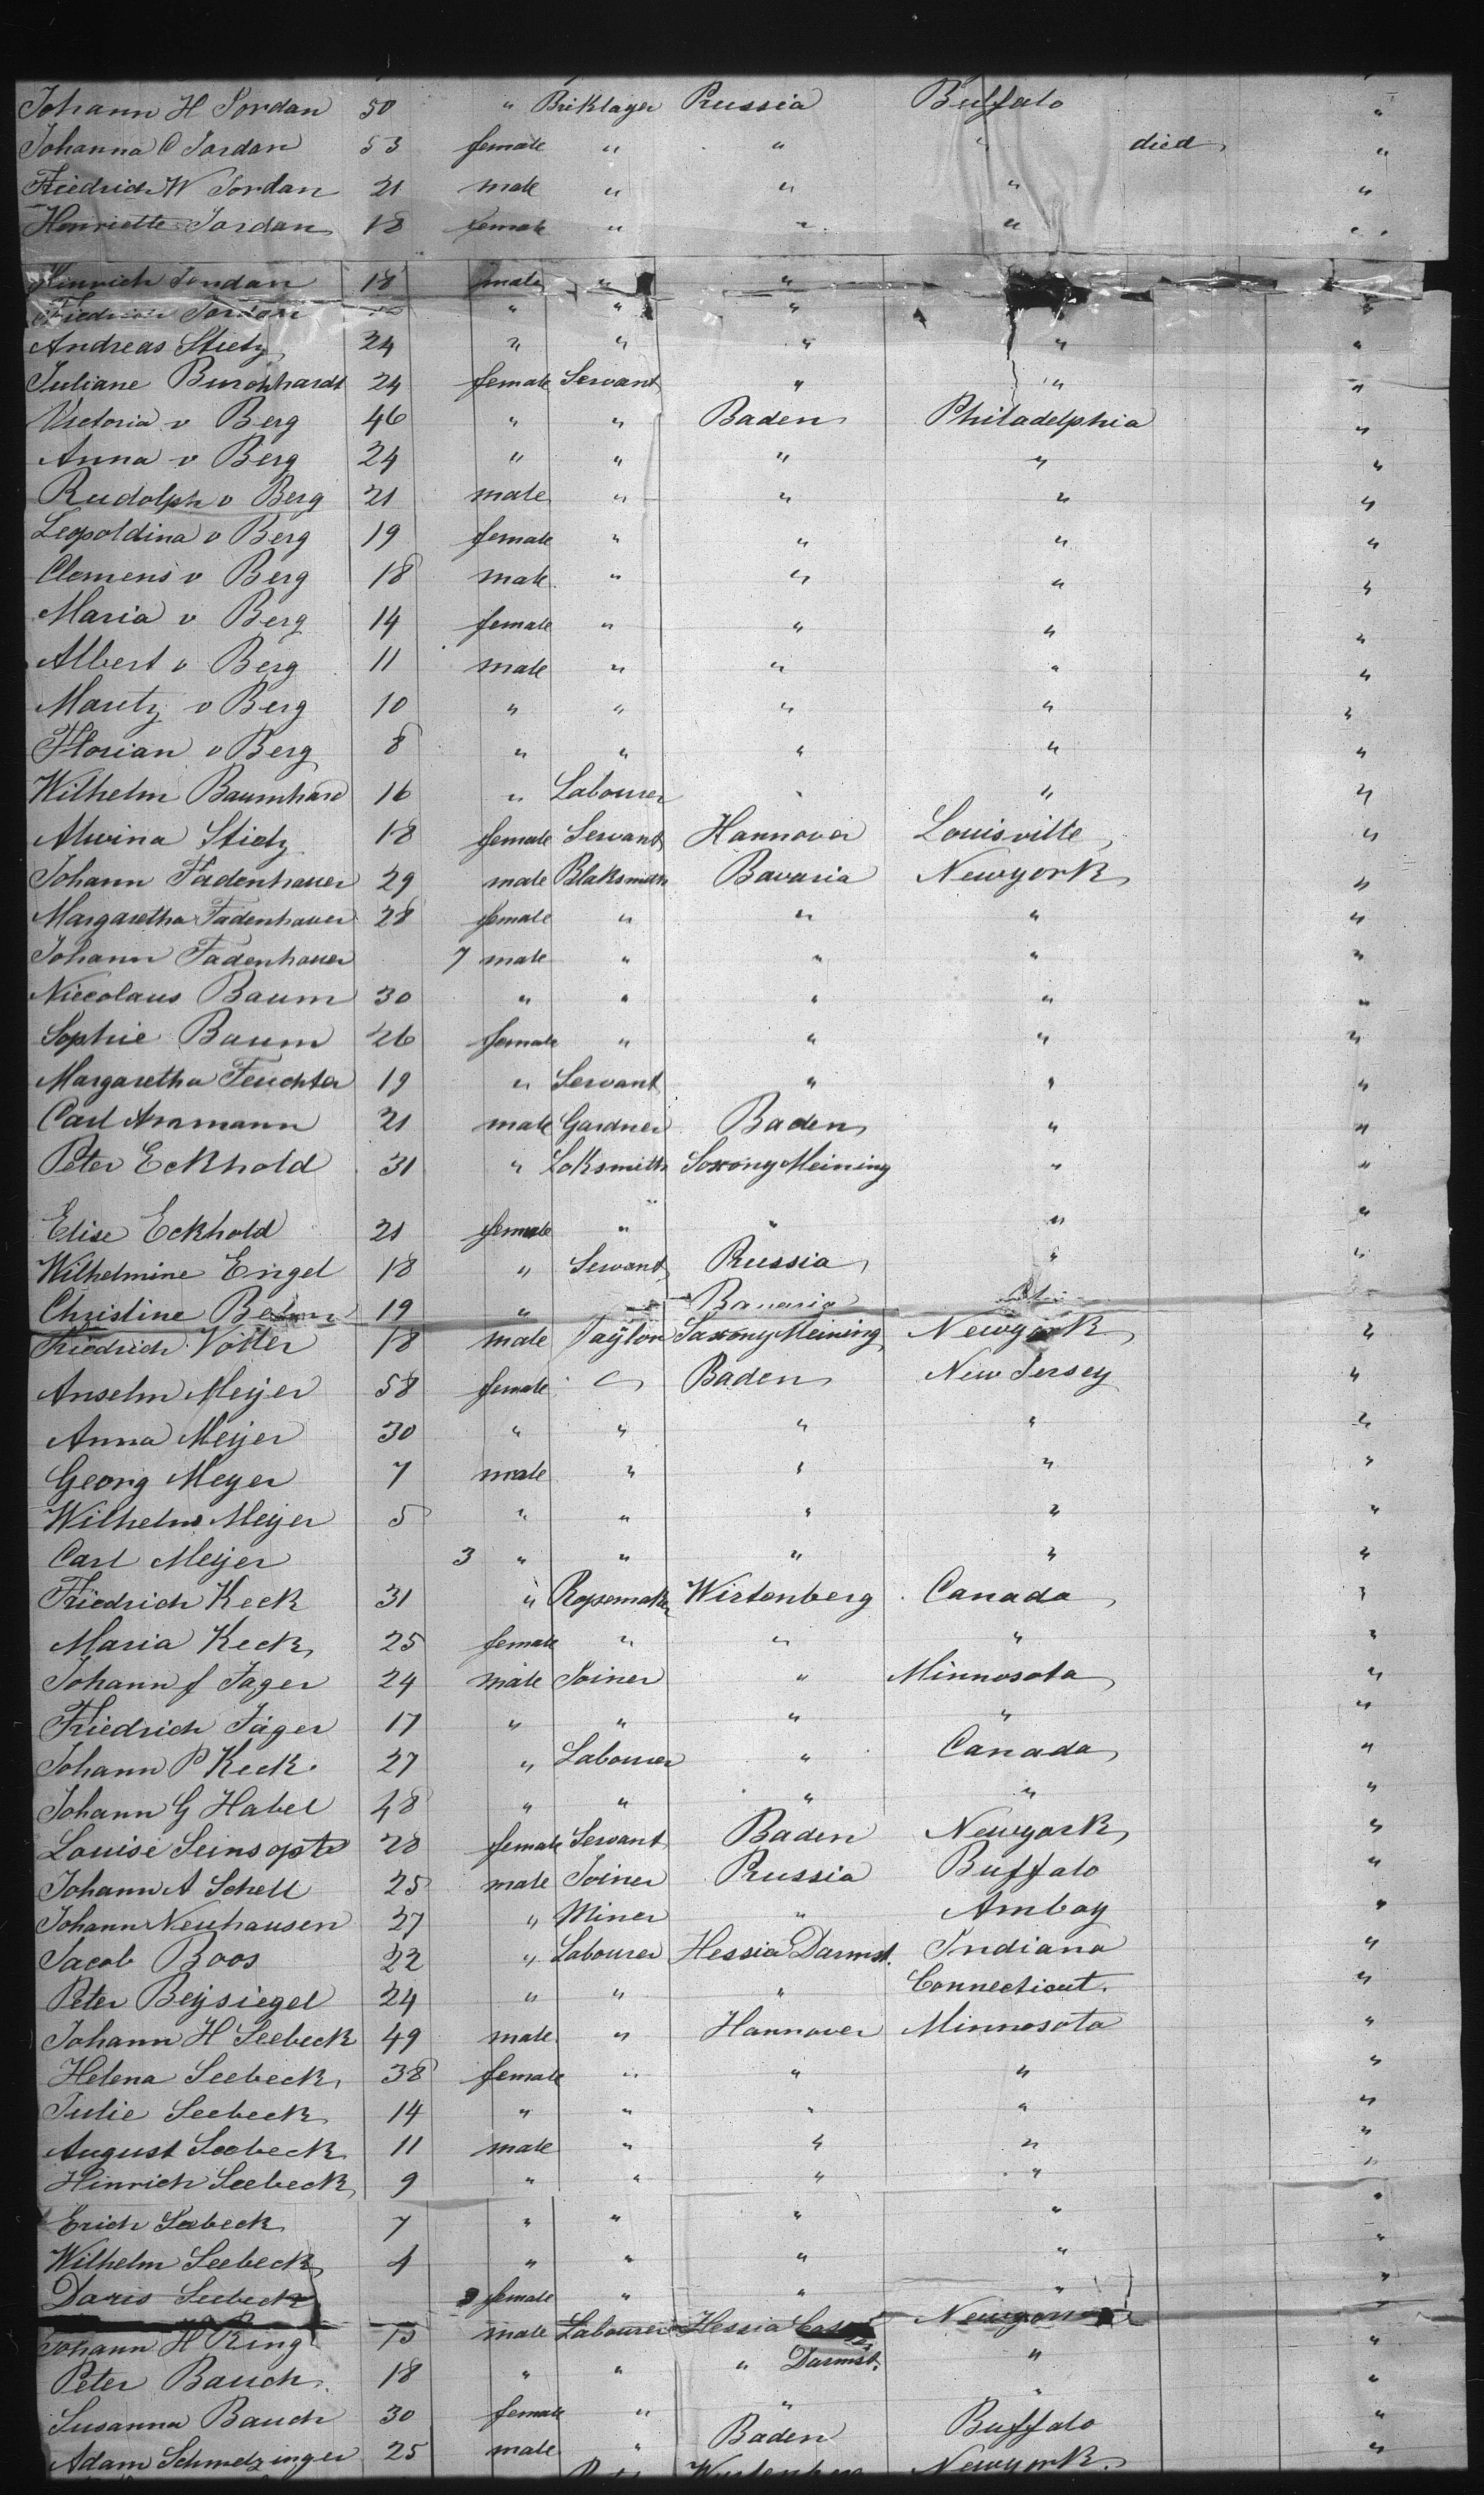 Johann H Jordan 50 " Briklayer Prussia Buffalo "
Johanna C Jordan 53 female " " " died "
Friedrich W Jordan 21 male " " " "
Henriette Jordan 18 female " " " "
Hinrich Jordan 18 male " "
Friedrich Jordan " " " "
Andreas Stietz 24 " " " " "
Juliane Burchhardt 24 female Servant " " "
Victoria v Berg 46 " " Baden Philadelphia "
Anna v Berg 24 " " " " "
Rudolph v Berg 21 male " " " "
Leopoldina v Berg 19 female " " " "
Clemens v Berg 18 male " " " "
Maria v Berg 14 female " " " "
Albert v Berg 11 male " " " "
Moritz v Berg 10 " " " " "
Florian v Berg 8 " " " " "
Wilhelm Baumhard 16 " Labourer " " "
Alwina Stietz 18 female Servant Hannover Louisville "
Johann Fadenhauer 29 male Blaksmith Bavaria Newyork "
Margaretha Fadenhauer 28 female " " " "
Johann Fadenhauer 7 male " " " "
Niccolaus Baum 30 " " " " "
Sophie Baum 26 female " " " "
Margaretha Feuchter 19 " Servant " " "
Carl Ammann 21 male Gardner Baden " "
Peter Eckhold 31 " Loksmith Saxony Meining " "
Elise Eckhold 21 female " " " "
Wilhelmine Engel 18 " Servant Prussia " "
Christine 19 " Bavaria
Friedrich Voller 18 male Taylor Saxony Meining Newyork "
Anselm Meijer 58 female " Baden New Jersey "
Anna Meijer 30 " " " " "
Georg Meyer 7 male " " " "
Wilhelm Meijer 5 " " " " "
Carl Meijer 3 " " " " "
Friedrich Keck 31 " Ropemaker Wirtenberg Canada "
Maria Keck 25 female " " " "
Johann f Jager 24 male Joiner " Minnosota "
Friedrich Jäger 17 " " " " "
Johann P Keck 27 " Labourer " Canada "
Johann G Habel 48 " " " " "
Louise 28 female Servant Baden Newyork "
Johann A Schell 25 male Joiner Prussia Buffalo "
Johann Neuhausen 27 " Miner " Amboy "
Jacob Boos 22 " Labourer Hessia Darmst. Indiana "
Peter Beijsiegel 24 " " " Connecticut. "
Johann H Seebeck 49 male " Hannover Minnosota "
Helena Seebeck 38 female " " " "
Julie Seebeck 14 " " " " "
August Seebeck 11 male " " " "
Hinrich Seebeck 9 " " " " "
Erich Seebeck 7 " " " " "
Wilhelm Seebeck 4 " " " " "
Doris Seebeck female " " " "
Johann H Ring male Labourer Hessia Newyork
Peter Bauch 18 " " " Darmst. " "
Susanna Bauch 30 female " " " "
Adam Schmelzinger 25 male " Baden Buffalo "
Newyork. "